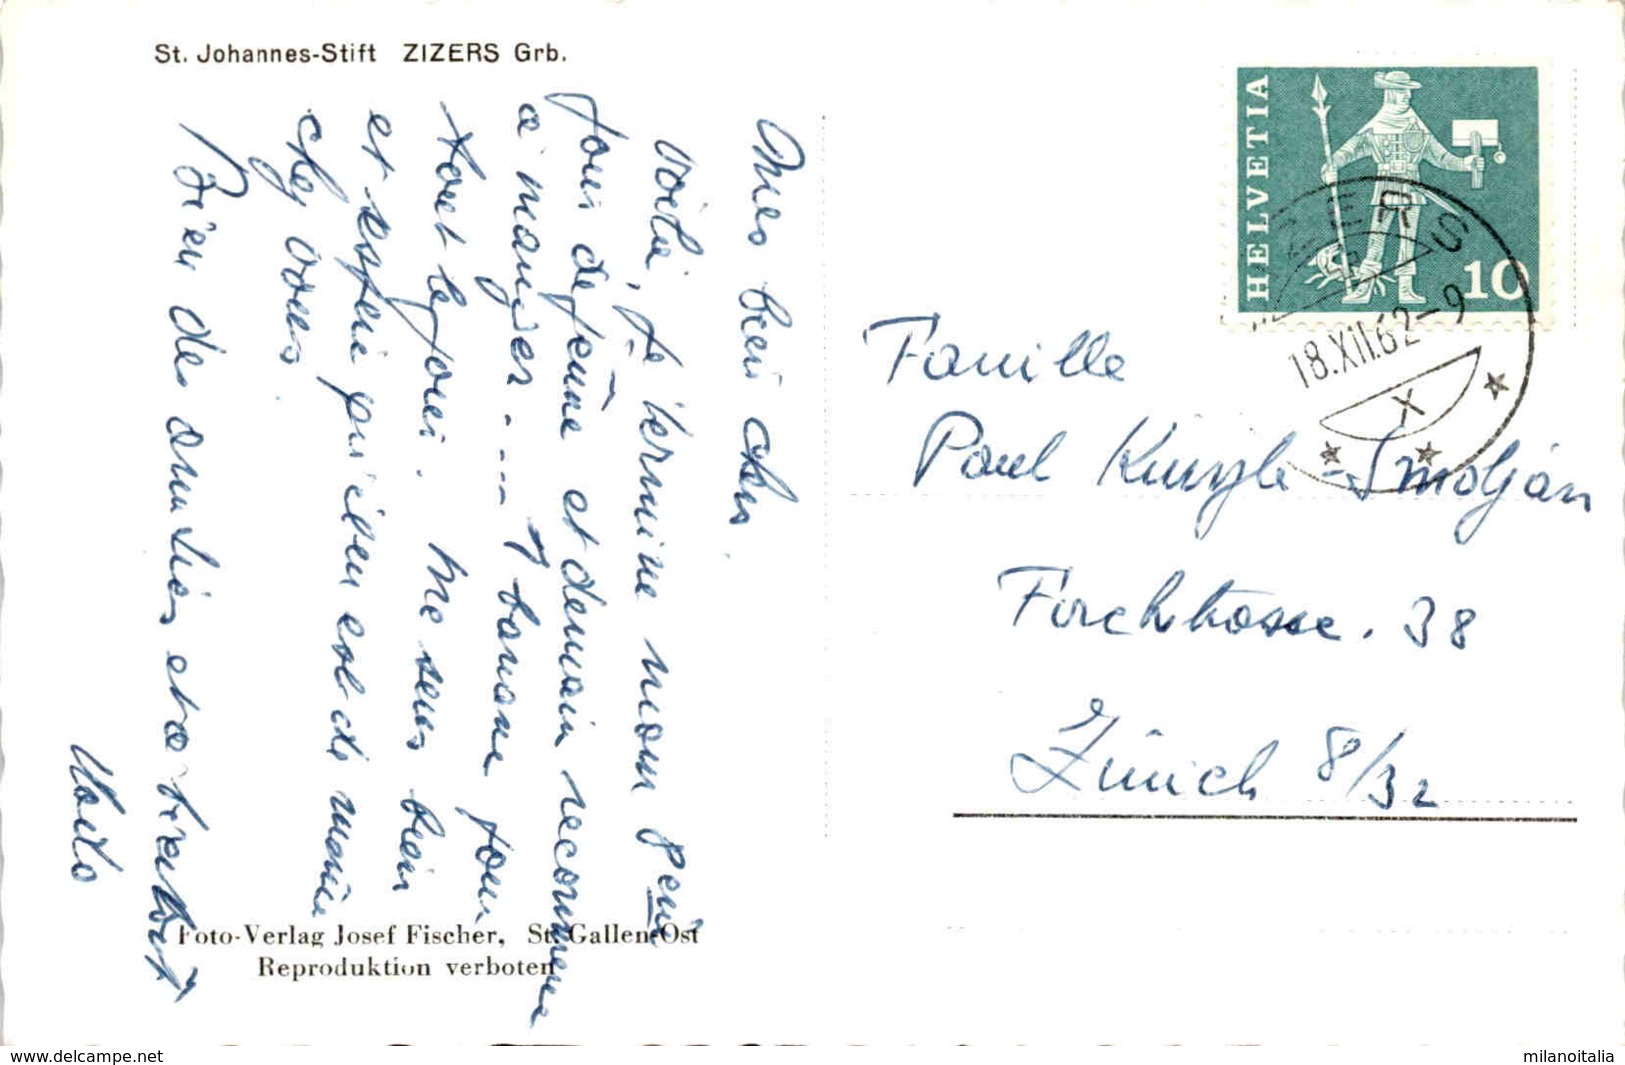 St. Johannes-Stift ZIZERS Grb.
Mes bien chers
Voilà, je termine mon 8eme
jour de jeûne et demain recommence
a manger .--- 1 banane pour
tout le jour. Me sens bien
et espère qu'il en est de même
chez vous
Bien des amitiés et a bientôt
Foto-Verlag Josef Fischer, St. Gallen-Ost
Reproduktion verboten
HELVETIA
10
ZIZERS
18.XII.62-9
X
Famille
Paul Künzle-Smolján
Forchstrasse. 38
Zürich 8/32
www.delcampe.net
milanoitalia